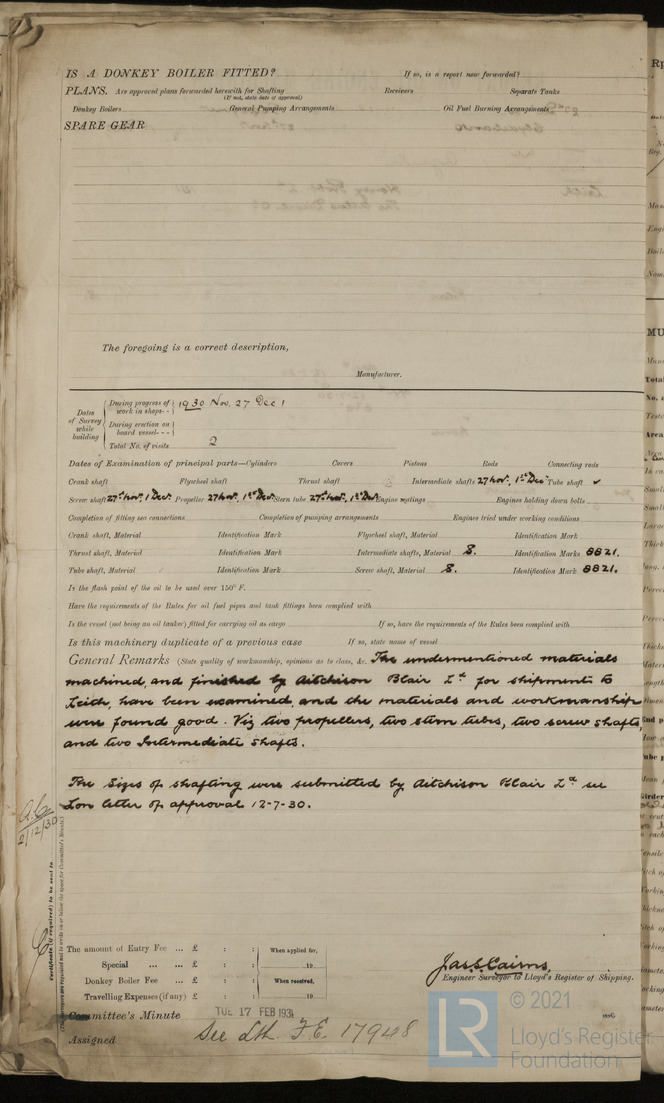 IS A DONKEY BOILER FITTED? If so, is a report now forwarded?
PLANS. Are approved plans forwarded herewith for Shafting Receivers Separate Tanks
(If not, state date of approval)
Donkey Boilers General Pumping Arrangements Oil Fuel Burning Arrangements
SPARE GEAR
The foregoing is a correct description,
Manufacturer.
Dates of Survey while building
During progress of work in shops - - 1930 Nov. 27 Dec 1
During erection on board vessel - - -
Total No. of visits 2
Dates of Examination of principal parts—Cylinders Covers Pistons Rods Connecting rods
Crank shaft Flywheel shaft Thrust shaft Intermediate shafts 27 Nov. 1st Dec Tube shaft ✓
Screw shaft 27th Nov. 1 Dec. Propeller 27 Nov. 1st Dec. Stern tube 27th Nov. 1st Dec. Engine seatings Engines holding down bolts
Completion of fitting sea connections Completion of pumping arrangements Engines tried under working conditions
Crank shaft, Material Identification Mark Flywheel shaft, Material Identification Mark
Thrust shaft, Material Identification Mark Intermediate shafts, Material S. Identification Marks 8821.
Tube shaft, Material Identification Mark Screw shaft, Material S. Identification Mark 8821.
Is the flash point of the oil to be used over 150° F.
Have the requirements of the Rules for oil fuel pipes and tank fittings been complied with
Is the vessel (not being an oil tanker) fitted for carrying oil as cargo If so, have the requirements of the Rules been complied with
Is this machinery duplicate of a previous case If so, state name of vessel
General Remarks (State quality of workmanship, opinions as to class, &c. The undermentioned materials
machined, and finished by Aitchison Blair Ld for shipment to
Leith, have been examined, and the materials and workmanship
were found good. Viz two propellers, two stern tubes, two screw shafts,
and two Intermediate shafts.
The sizes of shafting were submitted by Aitchison Blair Ld see
Lon letter of approval 12-7-30.
2/12/30
Certificate (if required) to be sent to
(The Surveyors are requested not to write on or below the space for Committee's Minute.)
The amount of Entry Fee ... £ : : When applied for,
Special ... ... £ : : 19
Donkey Boiler Fee ... £ : : When received,
Travelling Expenses (if any) £ : : 19
Jas S Cairns
Engineer Surveyor to Lloyd's Register of Shipping.
Committee's Minute TUE 17 FEB 1931
Assigned See Lth. F.E. 17948
LR © 2021
Lloyd's Register
Foundation